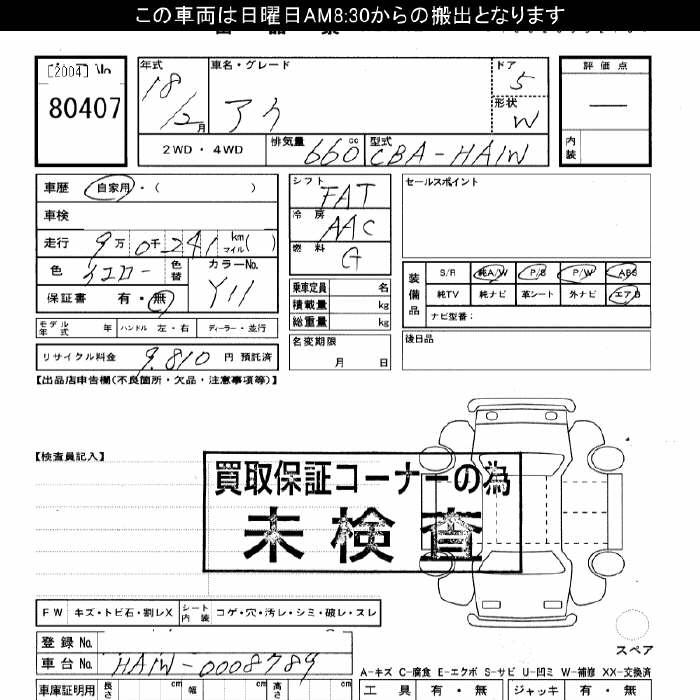 この車両は日曜日AM8:30からの搬出となります
[2004] No
80407
年式 車名・グレード ドア 評価点
18 アイ 5 ―
12月 形状 W
2WD・4WD 排気量 660cc 型式 CBA-HA1W 内装
車歴 自家用・( )
車検
走行 9万0千241km マイル( )
色 イエロー 色替 カラーNo. Y11
保証書 有・無
モデル年式 年 ハンドル 左・右 ディーラー・並行
リサイクル料金 9,810 円 預託済
シフト FAT
冷房 AAC
燃料 G
乗車定員 名
積載量 kg
総重量 kg
名変期限
月 日
セールスポイント
装備品 S/R 純A/W P/S P/W ABS
純TV 純ナビ 革シート 外ナビ エアB
ナビ型番:
後日品
【出品店申告欄(不良箇所・欠品・注意事項等)】
【検査員記入】
買取保証コーナーの為
未検査
FW キズ・トビ石・割レX シート内装 コゲ・穴・汚レ・シミ・破レ・スレ
スペア
登録No.
車台No. HA1W-0008789
A-キズ C-腐食 E-エクボ S-サビ U-凹ミ W-補修 XX-交換済
車庫証明用 長さ cm 幅 cm 高さ cm 工具 有・無 ジャッキ 有・無